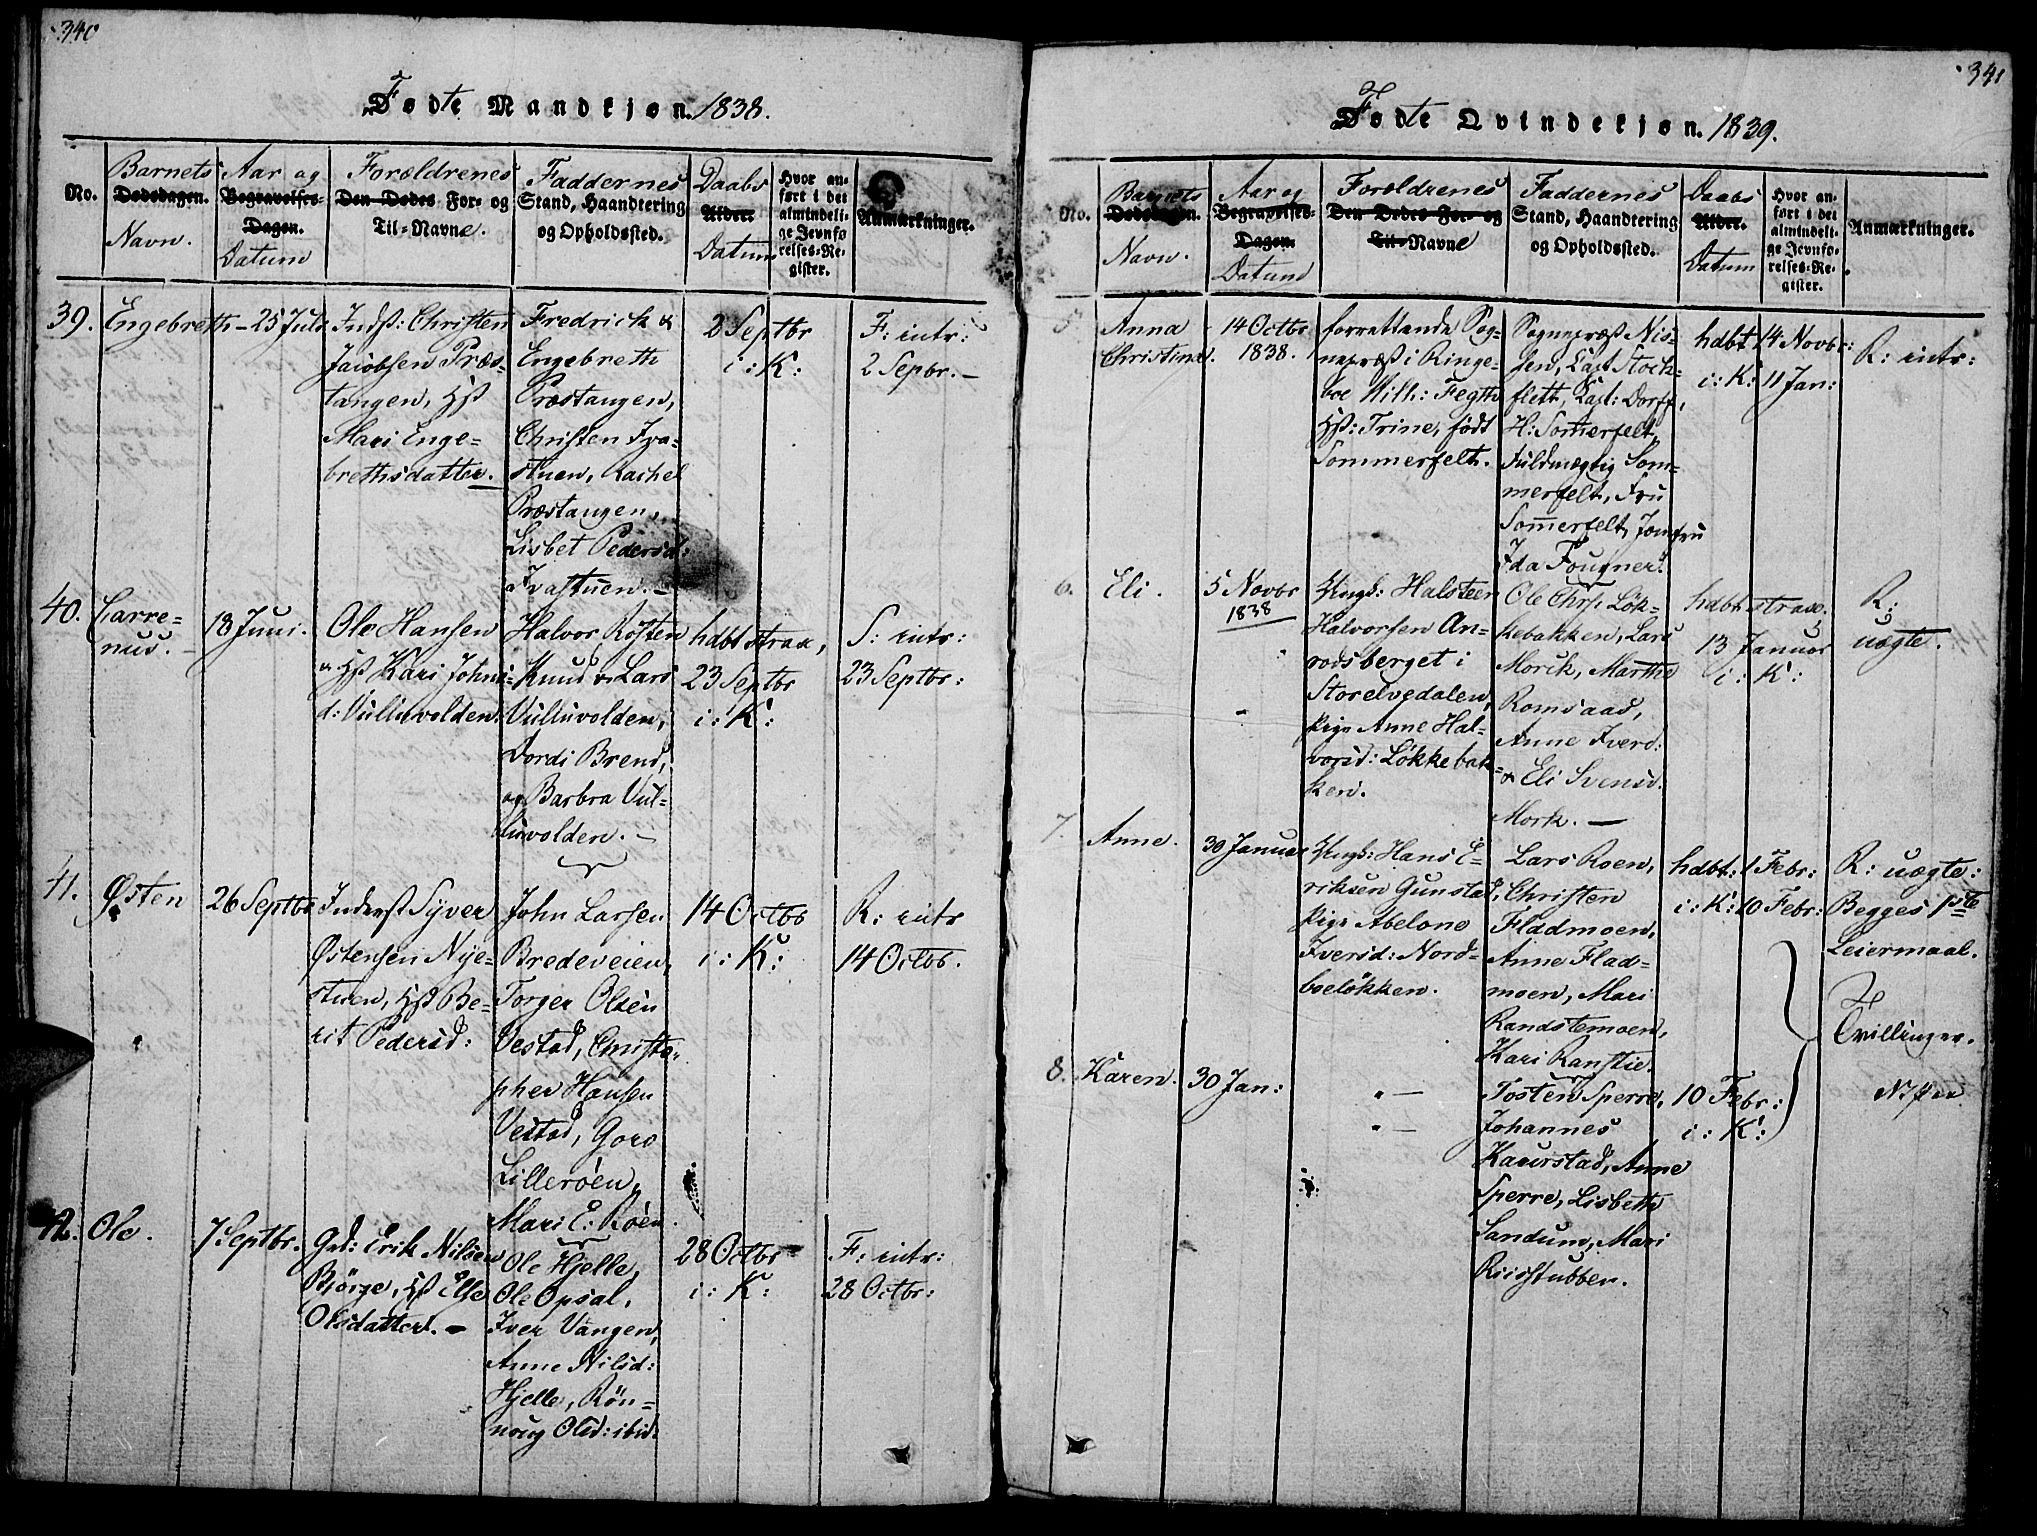 340
Fødte Mandkjøn. 1838.
No.
Barnets
Dødsdagen.
Navn.
Aar og
Begravelses-
Dagen.
Datum
Forældrenes
Den Dødes For- og
Til-Navne.
Faddernes
Stand, Haandtering
og Opholdssted.
Daabs
Alder.
Datum
Hvor an-
ført i det
almindeli-
ge Jevnfø-
relses-Re-
gister.
Anmærkninger.
39.
Engebreth
25 Juli
Indst: Christen
Jacobsen Præs-
tangen, Hst
Mari Enge-
brethsdatter.
Fredrick &
Engebreth
Præstangen,
Christen Iva-
stuen, Rachel
Præstangen,
Lisbet Pedersd:
Ivastuen. -
2 Septbr
i: K:
F: intr:
2 Sepbr. -
40.
Carre-
nus. -
18 Juni.
Ole Hansen
& Hst Kari Johns-
d: Vulluvolden.
Halvor Rosten
Knud & Lars
Vulluvolden,
Dordi Brend,
og Barbra Vul-
luvolden. -
hdbt strax,
23 Septbr
i: K:
S: intr:
23 Septbr:
41.
Østen
26 Septbr
Inderst Syver
Østensen Nye-
stuen, Hst Be-
rit Pedersd:
John Larsen
Bredeveien,
Torger Olsen
Vestad, Christo-
pher Hansen
Vestad, Goro
Lillerøen,
Mari E: Røen.
14 Octbr
i: K:
R: intr
14 Octbr.
42.
Ole.
7 Septbr.
Grd: Erik Nilsen
Bjørge, Hst Else
Olsdatter. -
Ole Hjelle,
Ole Opsal,
Iver Vangen,
Anne Nilsd:
Hjelle, Rön-
noug Olsd: ibid:
28 Octbr
i: K:
F: intr:
28 Octbr:
341
Fødte Qvindekjøn. 1839.
No.
Barnets
Dødsdagen.
Navn.
Aar og
Begravelses-
Dagen.
Datum
Forældrenes
Den Dødes For- og
Til-Navne
Faddernes
Stand, Haandtering
og Opholdssted.
Daabs
Alder.
Datum
Hvor an-
ført i det
almindeli-
ge Jevnfø-
relses-Re-
gister.
Anmærkninger.
5
Anna
Christine.
14 Octbr
1838.
forrettande Sog-
nepræst i Ringe-
boe Wilh: Fegth
Hst: Trine, født
Sommerfelt.
Sognepræst Nis-
sen, Capt Stock-
flett, Capt: Dorff,
H: Sommerfelt,
Fuldmægtig Som-
merfelt, Fru
Sommerfelt, Jomfru
Ida Fougner.
hdbt 14 Novbr:
i: K: 11 Jan:
R: intr:
6.
Eli.
5 Novbr
1838
Ungk: Halsteen
Halvorsen An-
rodsberget i
Storelvedalen,
Pige Anne Hal-
vorsd: Løkkebak-
ken.
Ole Chrs. Løk-
kebakken, Lars
Morck, Marthe
Romsaas,
Anne Iversd:
& Eli Svensd.
Mork. -
hdbt strax.
13 Januar
i: K:
R:
uægte.
7.
Anne.
30 Januar
Ungk: Hans E-
riksen Gunstad,
Pige Abelone
Iversd: Nord-
boeløkken.
Lars Roen,
Christen
Fladmoen,
Anne Flad-
moen, Mari
Randstemoen,
Kari Ranstie.
hdbt: 1 Febr:
i: K: 10 Febr:
R: uægte:
Begges 1ste
Leiermaal.
Tvillinger.
8.
Karen.
30 Jan:
" -
" -
Tosten Sperre,
Johannes
Kaurstad, Anne
Sperre, Lisbeth
Sandum, Mari
Riisstubben.
10 Febr:
i: K: